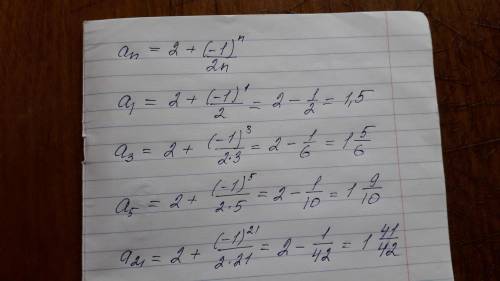 aₙ = 2 + (-1)ⁿ/2n
a₁ = 2 + (-1)¹/2 = 2 - 1/2 = 1,5
a₃ = 2 + (-1)³/2·3 = 2 - 1/6 = 1 5/6
a₅ = 2 + (-1)⁵/2·5 = 2 - 1/10 = 1 9/10
a₂₁ = 2 + (-1)²¹/2·21 = 2 - 1/42 = 1 41/42